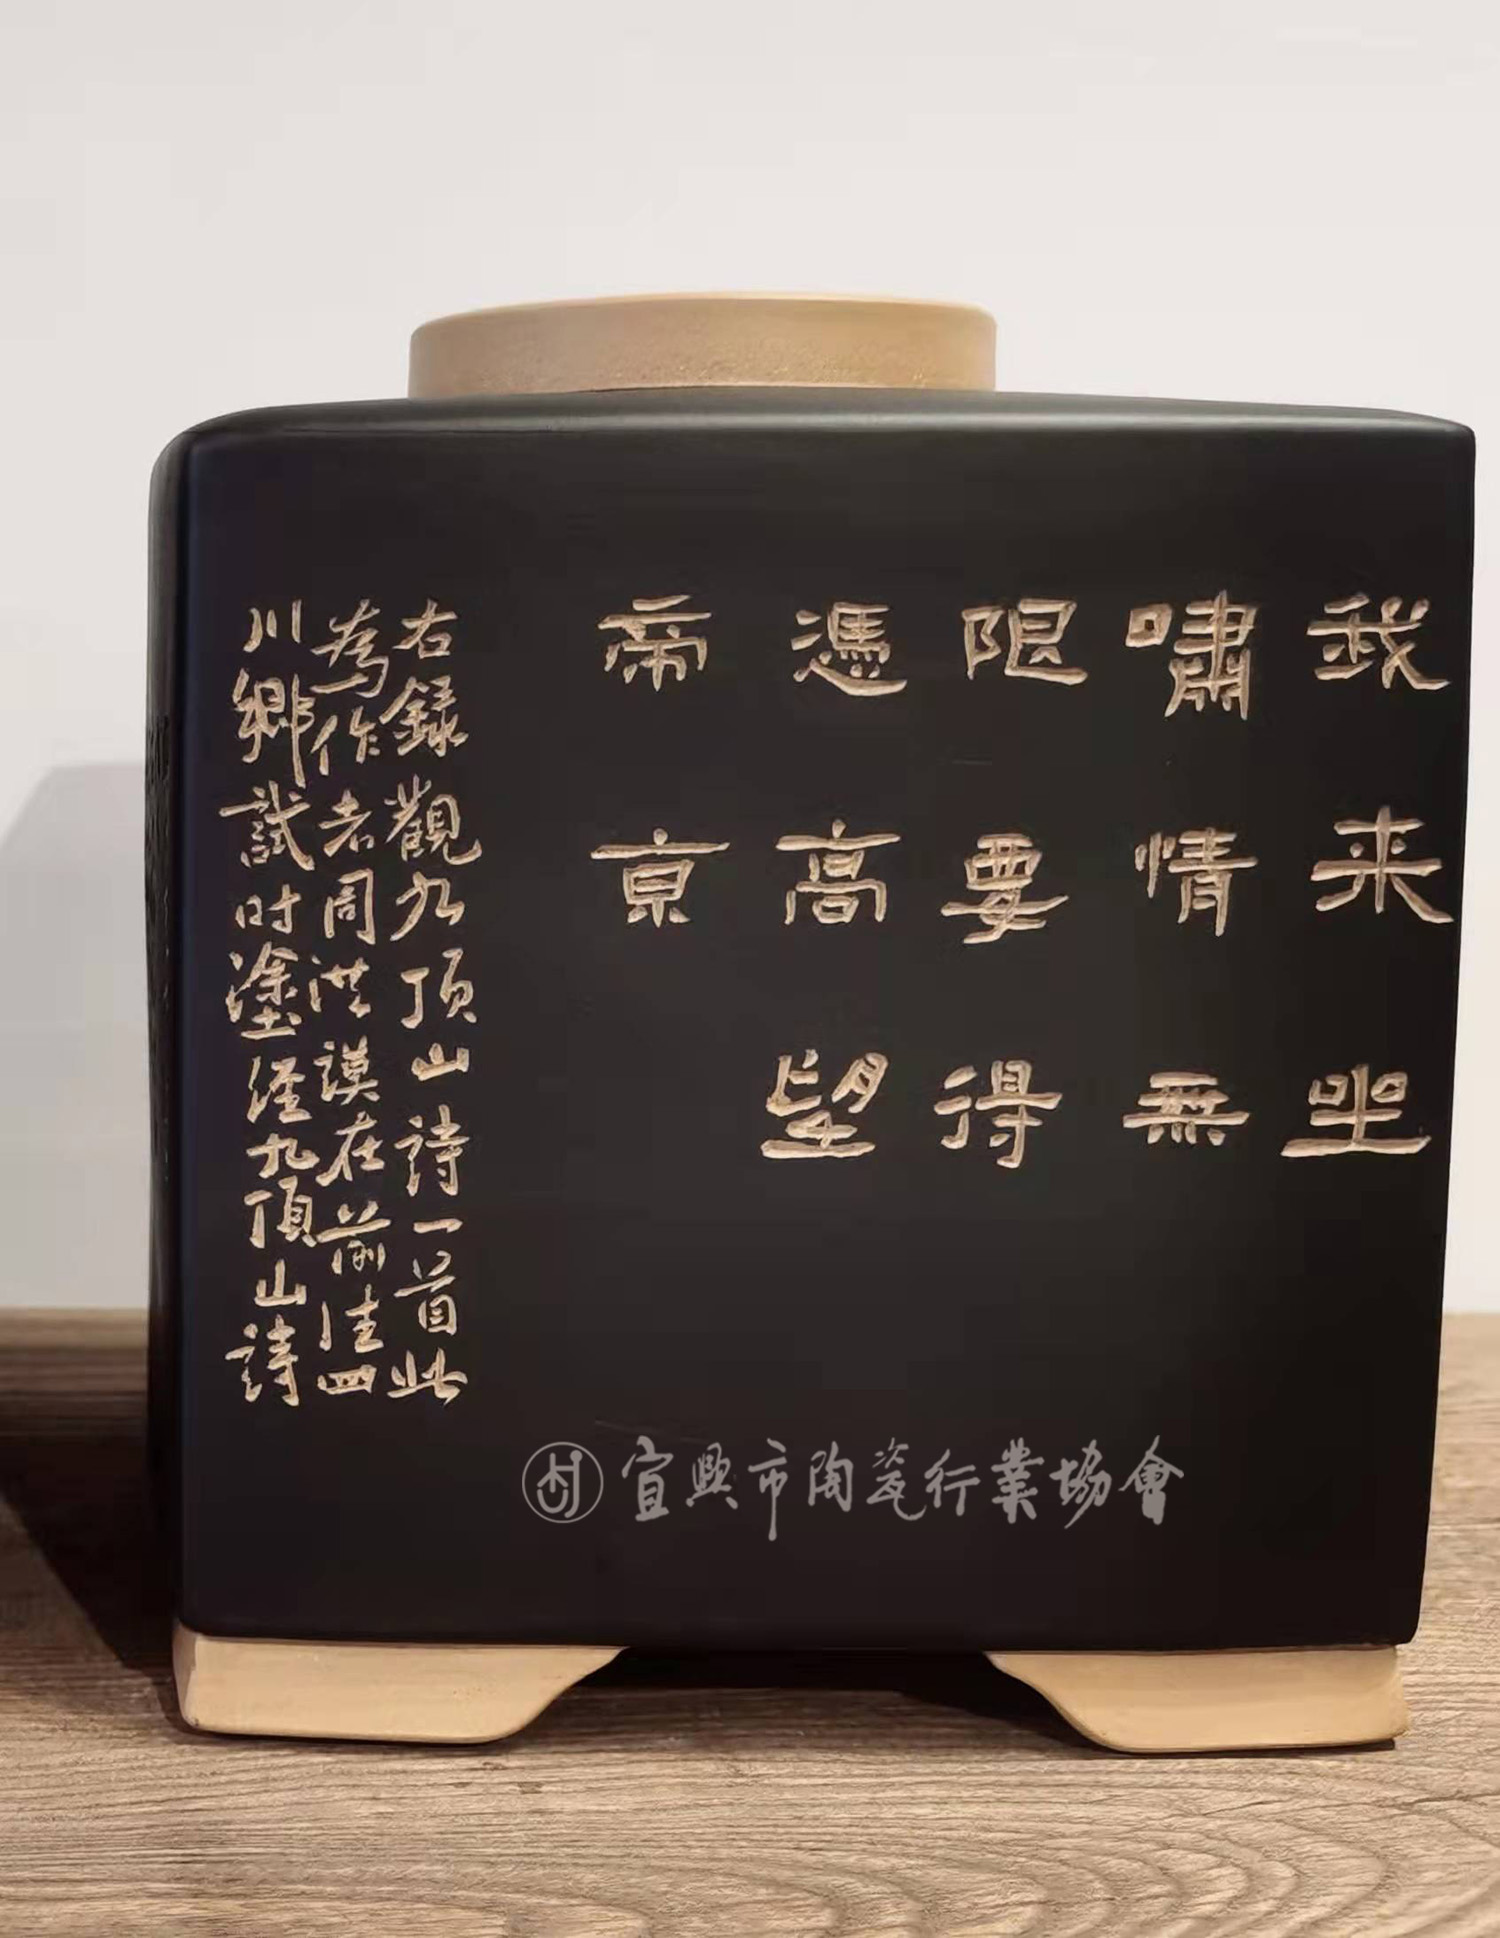 我来坐
嘯情無
限要得
憑高望
帝京
右録觀九頂山詩一首此
為作者周洪謨在前往四
川鄉試时塗經九頂山詩
宜興市陶瓷行業協會